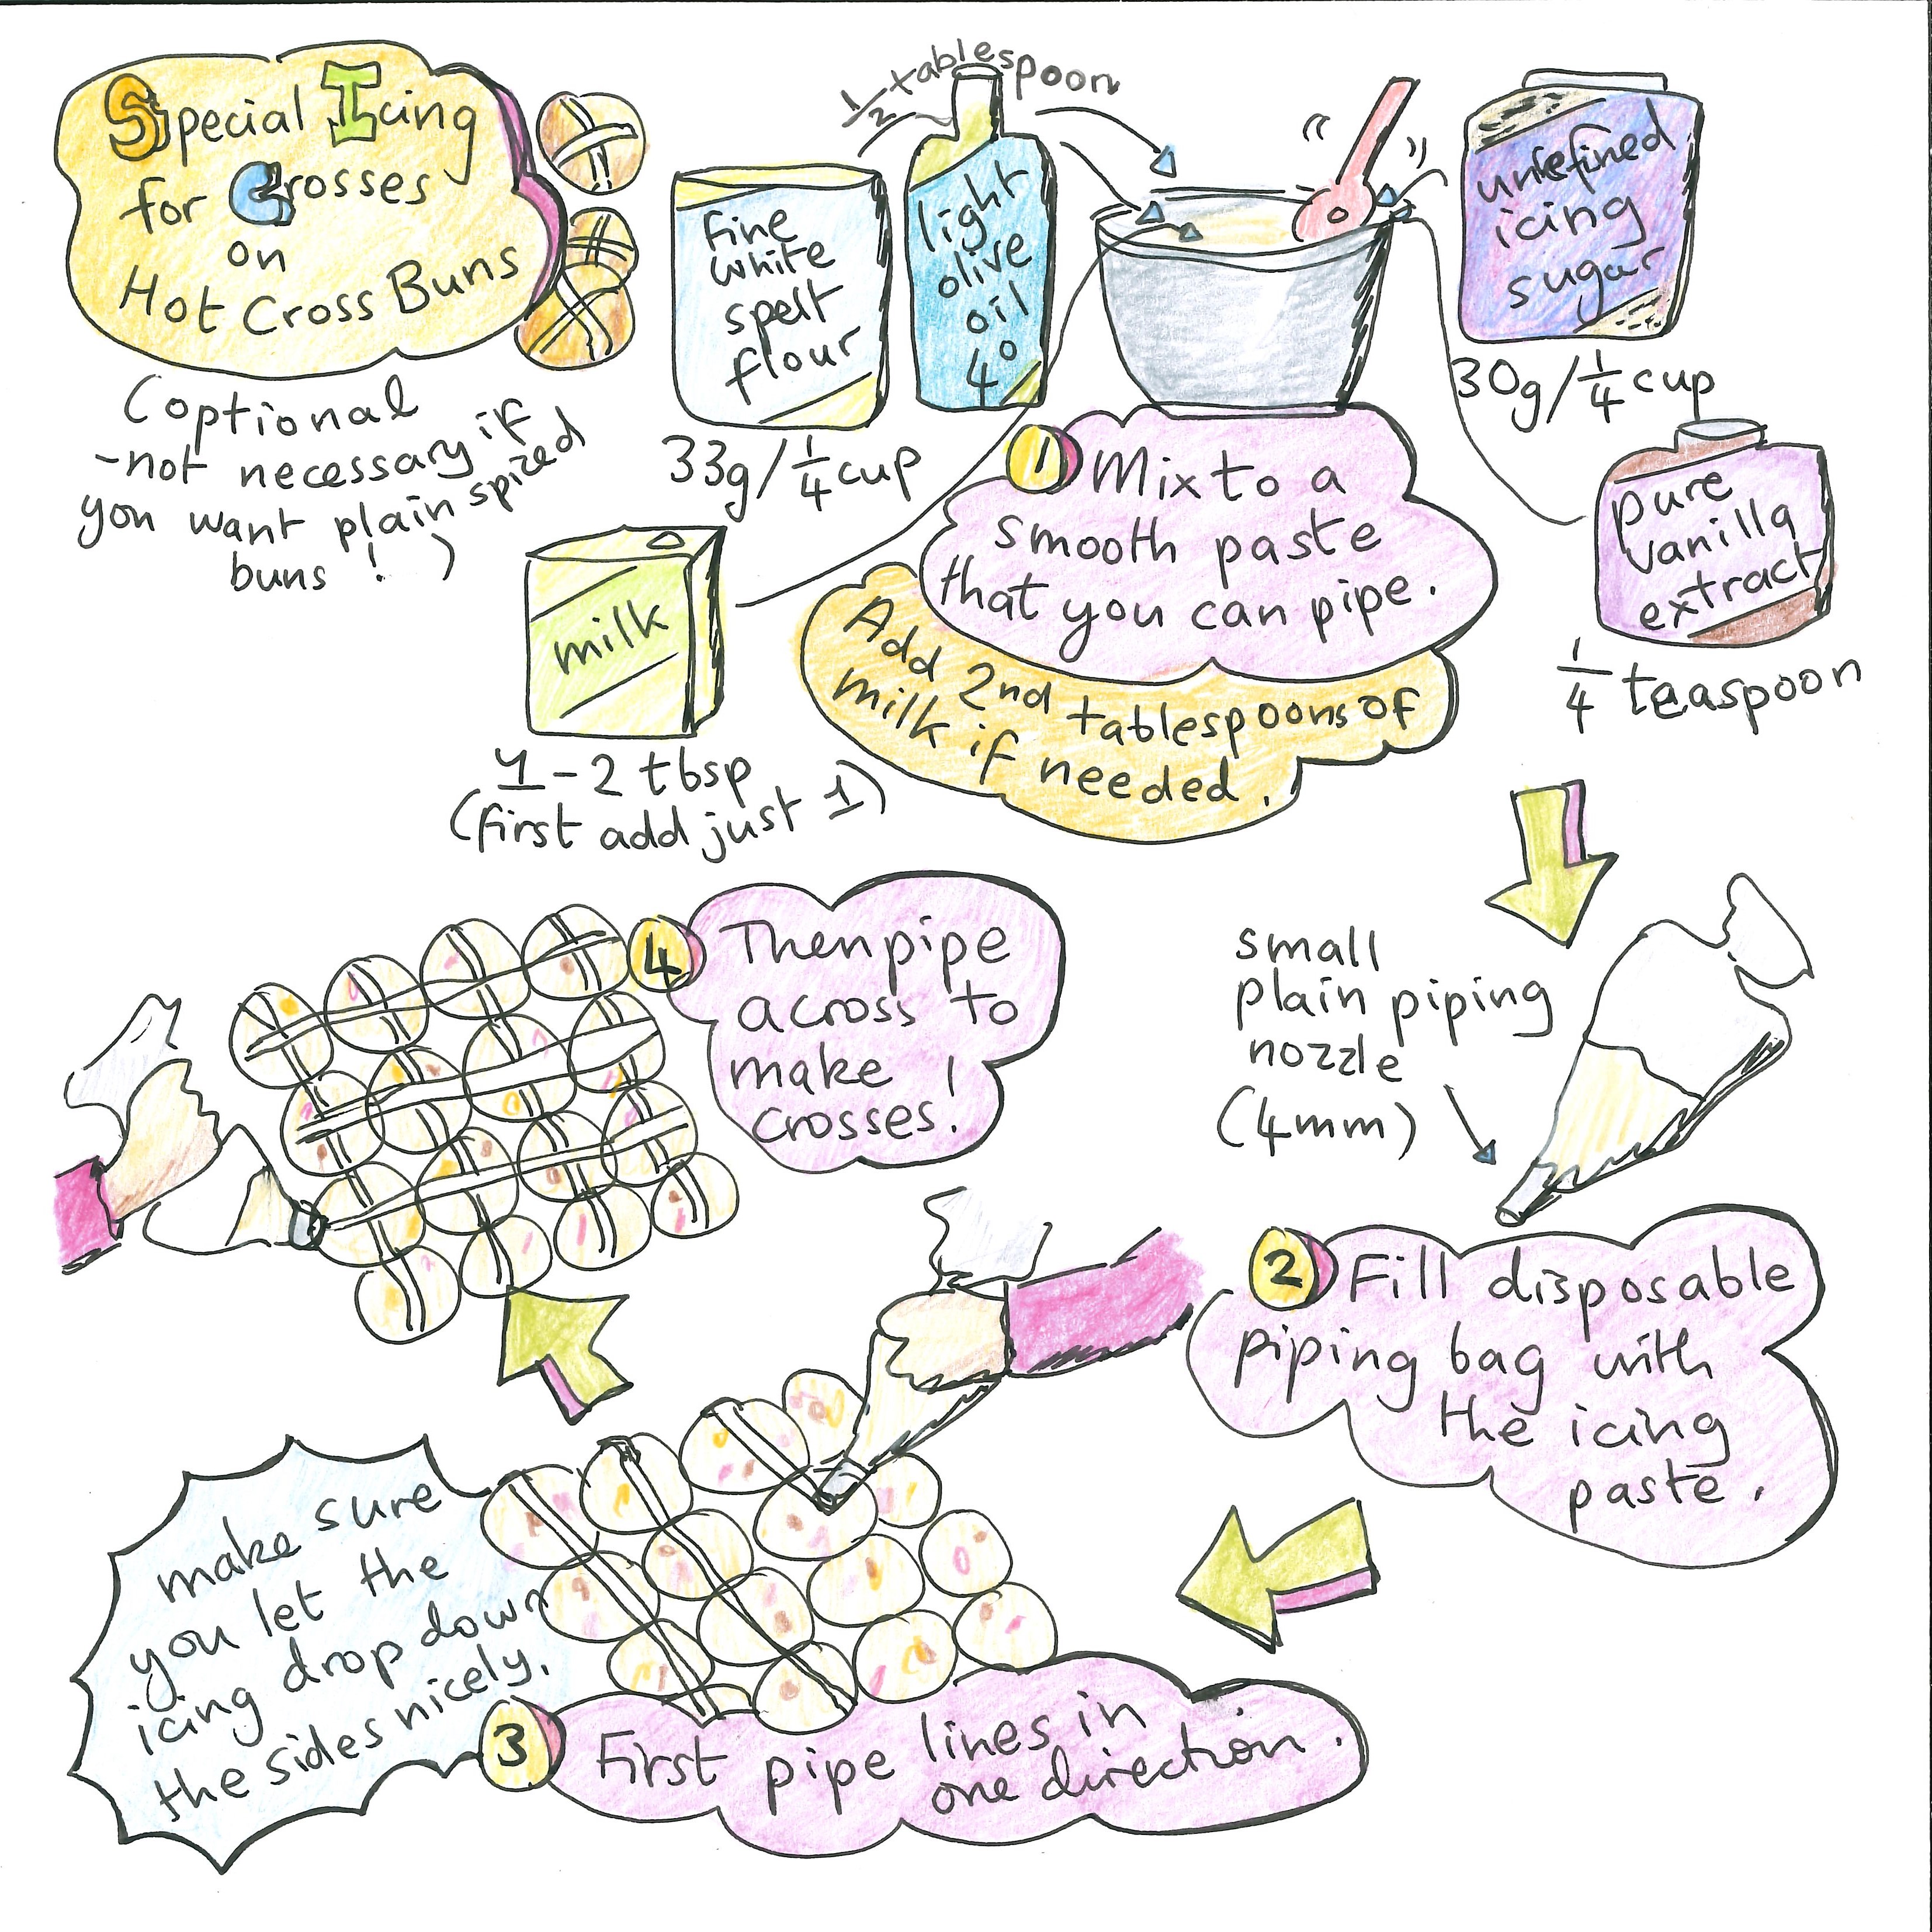 Special Icing
for Crosses
on
Hot Cross Buns
(optional
-not necessary if
you want plain spized
buns! )
1/2 tablespoon
fine
white
spelt
flour
33g/1/4 cup
light
olive
oil
4°
unrefined
icing
sugar
30g/1/4 cup
pure
vanilla
extract
1/4 teaspoon
milk
1-2 tbsp
(first add just 1)
1 Mix to a
smooth paste
that you can pipe.
Add 2nd tablespoons of
milk if needed.
small
plain piping
nozzle
(4mm)
2 Fill disposable
piping bag with
the icing
paste.
3 First pipe lines in
one direction.
make sure
you let the
icing drop down
the sides nicely.
4 Then pipe
across to
make
crosses!